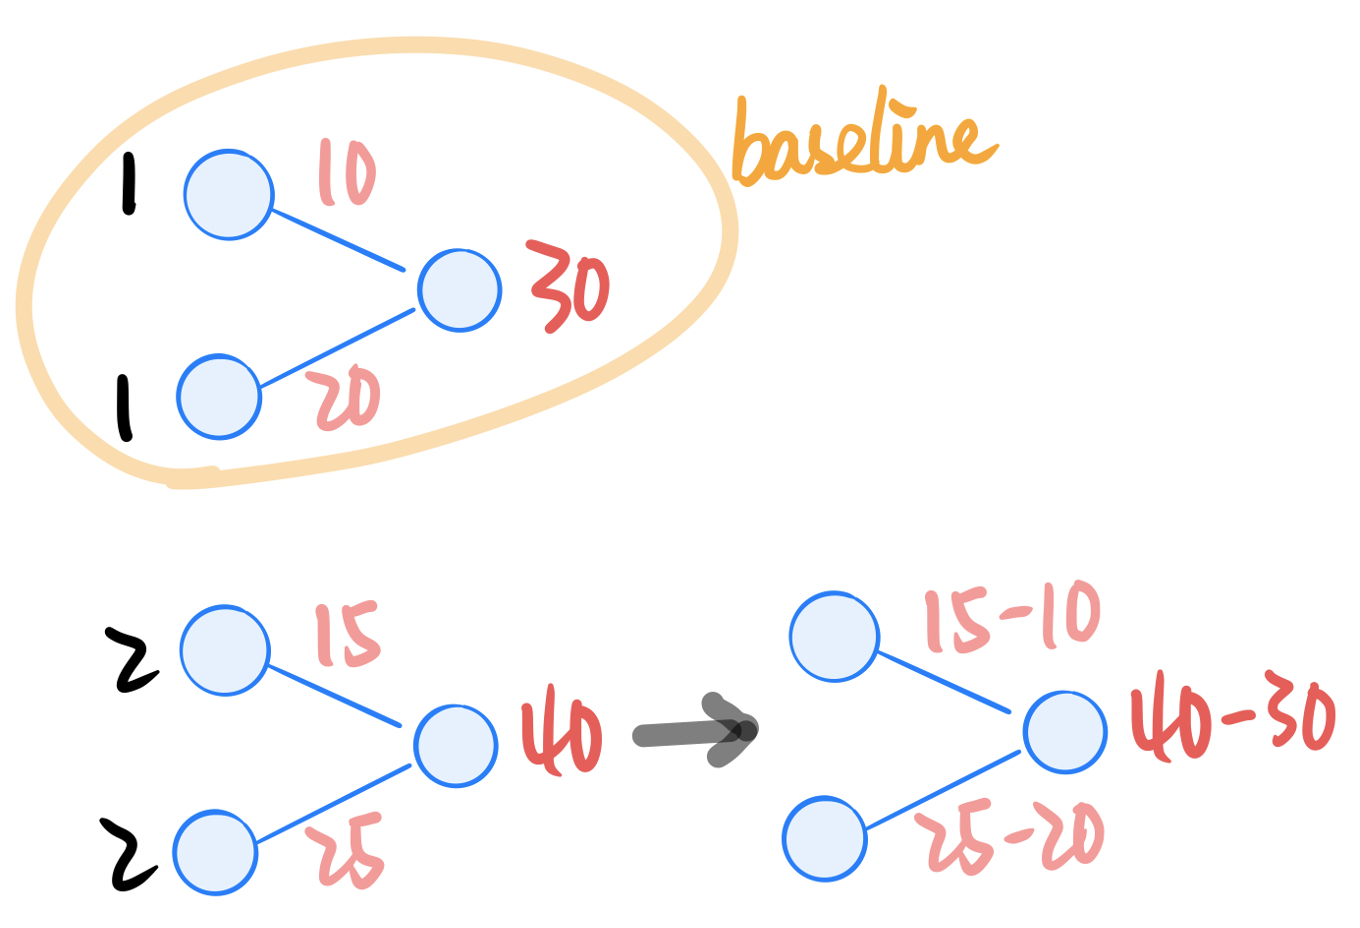 baseline
1 10
30
1 20
2 15
40
2 25
15-10
40-30
25-20